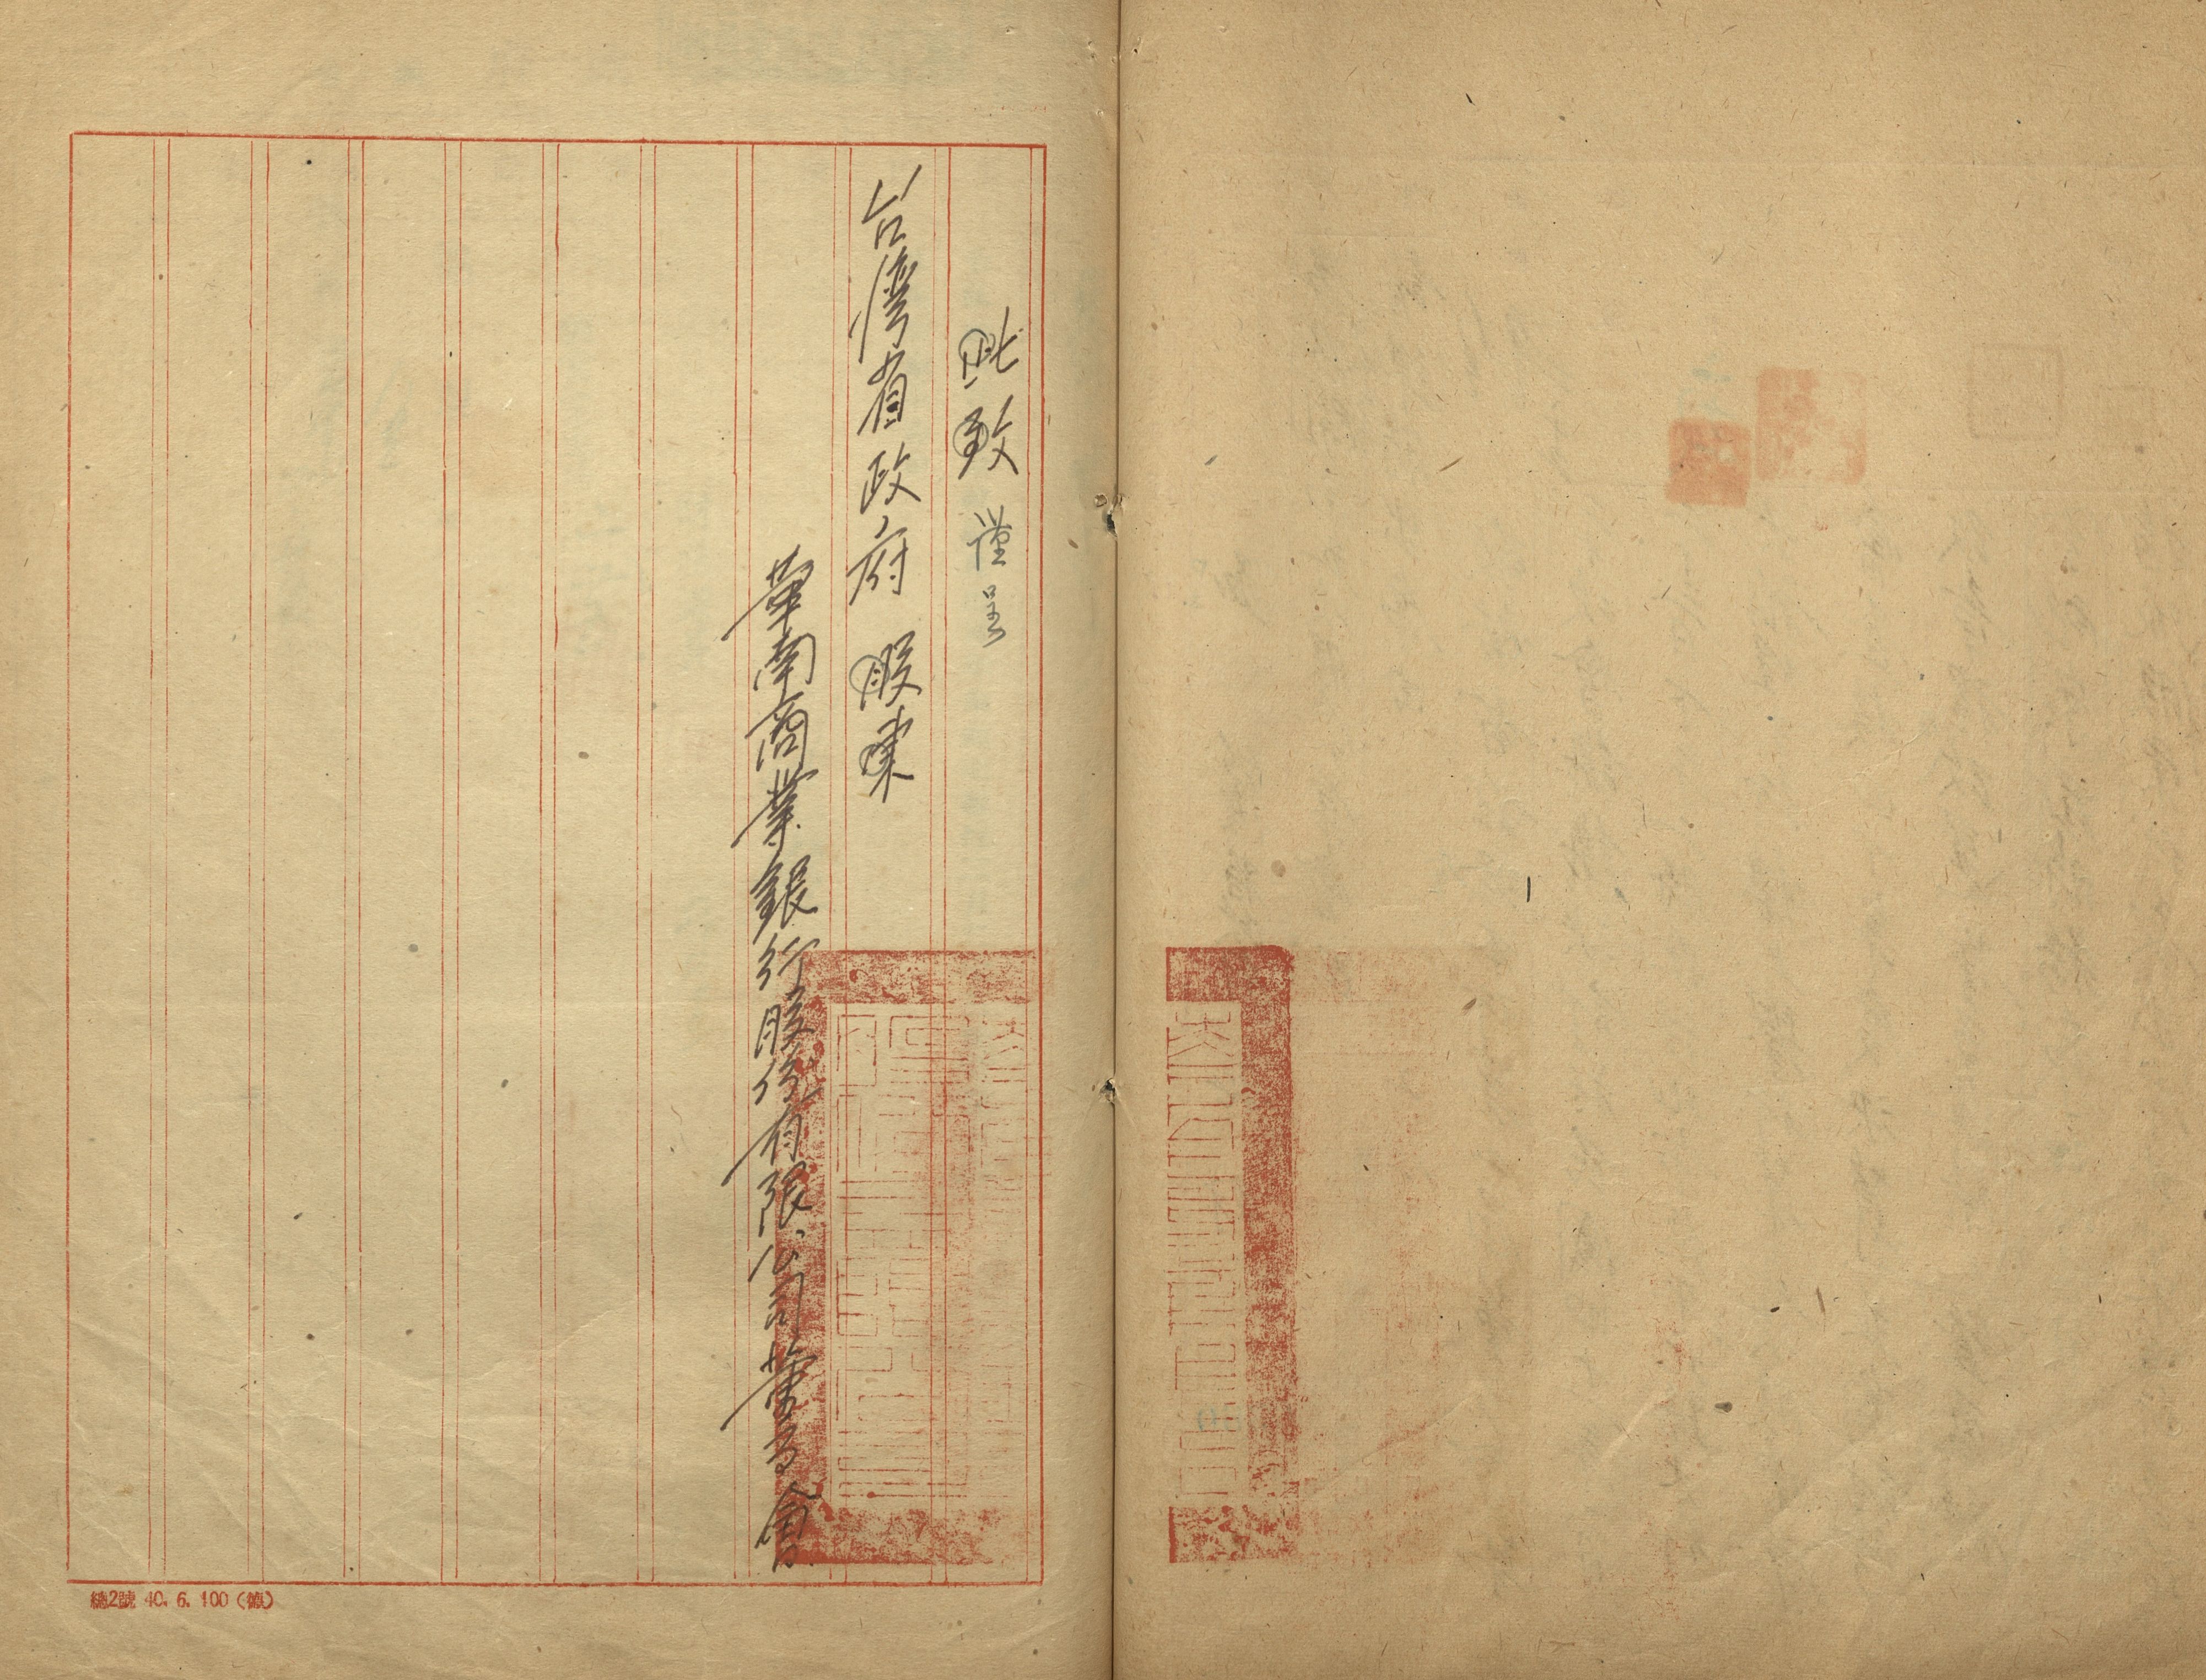 此致 謹呈
台灣省政府 股東
華南商業銀行股份有限公司董事會
總2號 40. 6. 100 (億)